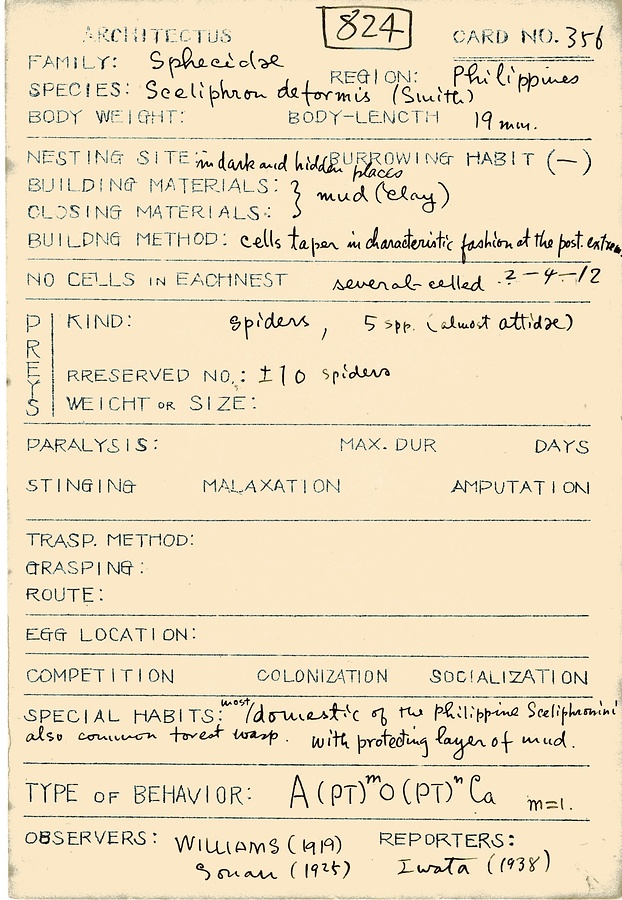 824
ARCHITECTUS CARD NO. 356
FAMILY: Sphecidae
REGION: Philippines
SPECIES: Sceliphron deformis (Smith)
BODY WEIGHT: BODY-LENGTH 19 mm.
NESTING SITE: in dark and hidden places BURROWING HABIT (—)
BUILDING MATERIALS: } mud (clay)
CLOSING MATERIALS:
BUILDNG METHOD: cells taper in characteristic fashion at the post. extrem.
NO CELLS IN EACHNEST several-celled 2-4-12
PREYS
KIND: spiders, 5 spp. (almost attidae)
RRESERVED NO.: ±10 spiders
WEIGHT OR SIZE:
PARALYSIS: MAX. DUR DAYS
STINGING MALAXATION AMPUTATION
TRASP. METHOD:
GRASPING:
ROUTE:
EGG LOCATION:
COMPETITION COLONIZATION SOCIALIZATION
SPECIAL HABITS: most/domestic of the Philippine Sceliphronini
also common forest wasp. with protecting layer of mud.
TYPE OF BEHAVIOR: A(PT)ᵐO(PT)ⁿCa m=1.
OBSERVERS: WILLIAMS (1919) REPORTERS:
Sonan (1925) Iwata (1938)